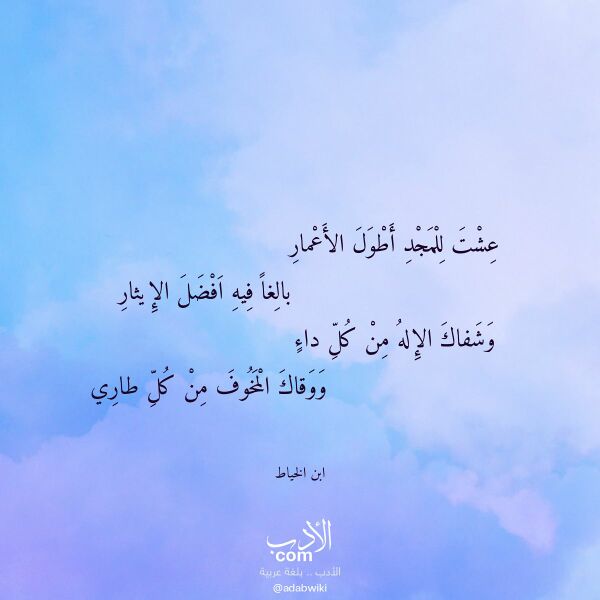 عِشْتَ لِلْمَجْدِ أَطْوَلَ الأَعْمارِ
بالِغاً فِيهِ اَفْضَلَ الإِيثارِ
وَشَفاكَ الإِلهُ مِنْ كُلِّ داءٍ
وَوَقاكَ الْمَخُوفَ مِنْ كُلِّ طارِي
ابن الخياط
الأدب
com
الأدب .. بلغة عربية
@adabwiki